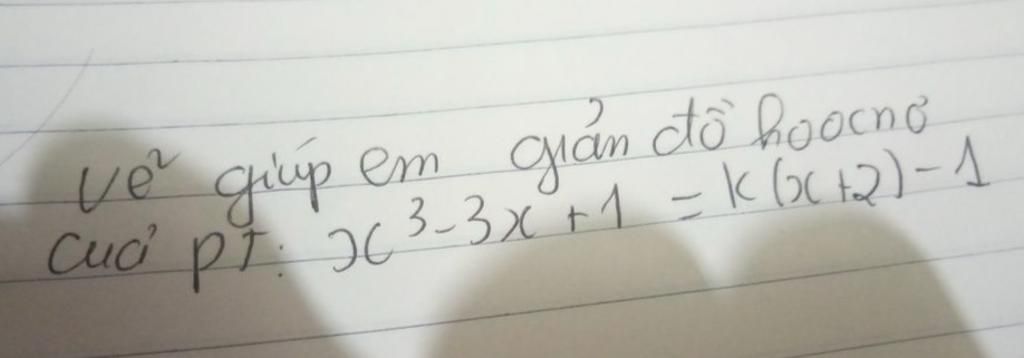 Vẽ giúp em giản đồ hoocnơ
cuả pt: x³-3x+1 = k(x+2)-1